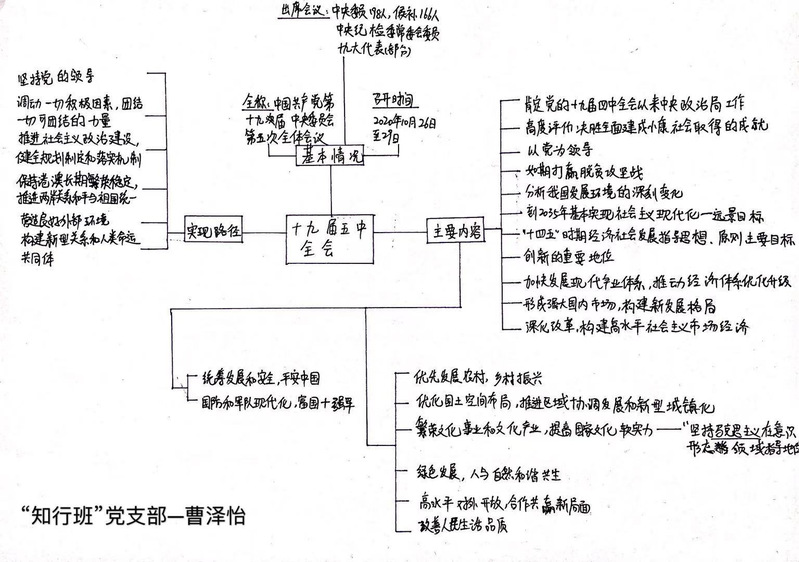 出席会议：中央委员198人，候补166人
中央纪检委常委会委员
十九大代表(部分)
全称：中国共产党第
十九次届中央委员会
第五次全体会议
召开时间
2020年10月26日
至29日
基本情况
十九届五中
全会
实现路径
坚持党的领导
调动一切积极因素，团结
一切可团结的力量
推进社会主义政治建设，
健全规划制定和落实机制
保持港澳长期繁荣稳定，
推进两岸关系和平与祖国统一
营造良好外部环境
构建新型关系和人类命运
共同体
主要内容
肯定党的十九届四中全会以来中央政治局工作
高度评价决胜全面建成小康社会取得的成就
以党为领导
如期打赢脱贫攻坚战
分析我国发展环境的深刻变化
到2035年基本实现社会主义现代化一远景目标
"十四五"时期经济社会发展指导思想、原则主要目标
创新的重要地位
加快发展现代产业体系，推动经济体系优化升级
形成强大国内市场，构建新发展格局
深化改革，构建高水平社会主义市场经济
统筹发展和安全，平安中国
国防和军队现代化，富国十强军
优先发展农村，乡村振兴
优化国土空间布局，推进区域协调发展和新型城镇化
繁荣文化事业和文化产业，提高国家文化软实力——"坚持马克思主义在意识
形态领域指导地位
绿色发展，人与自然和谐共生
高水平对外开放，合作共赢新局面
改善人民生活品质
“知行班”党支部—曹泽怡